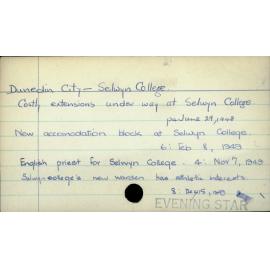 Dunedin City - Selwyn College.
Costly extensions under way at Selwyn College
June 29, 1948
New accomodation block at Selwyn College.
6: Feb 8, 1949
English priest for Selwyn College. 4: Nov 7, 1949
Selwyn college's new warden has athletic interests.
8: Dec 15, 1949
EVENING STAR